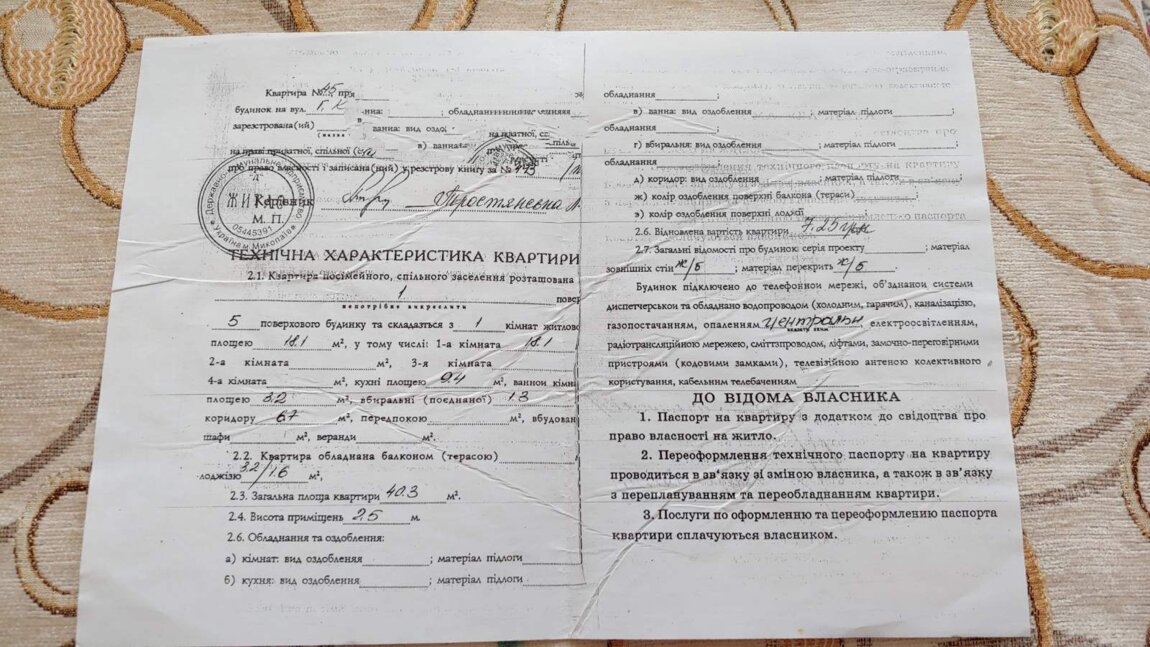 Квартира № 45 пр
будинок на вул. Г. К анна: ; обладнання
зареєстрована(ий) ванна: вид оздоб
(назва) в) ванна: на платної, сп
на праві приватної, спільної
про право власності і записана(ний) у реєстрову книгу за №
Керівник
М. П.
ЖИТЛО
05445391
Україна м. Миколаїв
ТЕХНІЧНА ХАРАКТЕРИСТИКА КВАРТИРИ
2.1. Квартира посімейного, спільного заселення розташована
непотрібне викреслити
1 повер
5 поверхового будинку та складається з 1 кімнат житлово
площею 18.1 м², у тому числі: 1-а кімната 18.1
2-а кімната м², 3-я кімната
4-а кімната м², кухні площею 9.4 м², ванної кімн
площею 3.2 м², вбиральні (поєднаної) 1.3
коридору 6.7 м², передпокою м², вбудован
шафи м², веранди м².
2.2. Квартира обладнана балконом (терасою)
лоджією 3.2/1.6 м²,
2.3. Загальна площа квартири 40.3 м².
2.4. Висота приміщень 2.5 м.
2.6. Обладнання та оздоблення:
а) кімнат: вид оздоблення ; матеріал підлоги
б) кухня: вид оздоблення ; матеріал підлоги
обладнання
в) ванна: вид оздоблення ; матеріал підлоги ;
обладнання
г) вбиральня: вид оздоблення ; матеріал підлоги ;
обладнання
д) коридор: вид оздоблення ; матеріал підлоги ;
ж) колір оздоблення поверхні балкона (тераси) ;
з) колір оздоблення поверхні лоджії
2.6. Відновлена вартість квартири 7.25 грн
2.7. Загальні відомості про будинок: серія проекту ; матеріал
зовнішніх стін ж/б ; матеріал перекрить ж/б .
Будинок підключено до телефонної мережі, об'єднаної системи
диспетчерськом та обладнано водопроводом (холодним, гарячим), каналізацією,
газопостачанням, опаленням централь, електроосвітленням,
вказати яким
радіотрансляційною мережею, сміттєпроводом, ліфтами, замочно-переговірними
пристроями (кодовими замками), телевізійною антеною колективного
користування, кабельним телебаченням
ДО ВІДОМА ВЛАСНИКА
1. Паспорт на квартиру з додатком до свідоцтва про
право власності на житло.
2. Переоформлення технічного паспорту на квартиру
проводиться в зв'язку зі зміною власника, а також в зв'язку
з переплануванням та переобладнанням квартири.
3. Послуги по оформленню та переоформленню паспорта
квартири сплачуються власником.